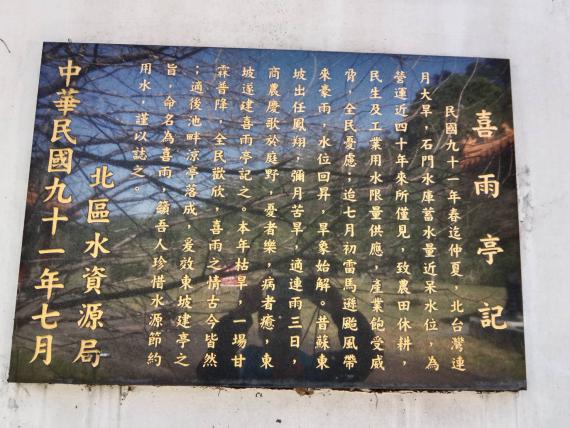 喜雨亭記
民國九十一年春迄仲夏，北台灣連
月大旱，石門水庫蓄水量近呆水位，為
營運近四十年來所僅見，致農田休耕，
民生及工業用水限量供應，產業飽受威
脅，全民憂慮；迨七月初雷馬遜颱風帶
來豪雨，水位回昇，旱象始解。昔蘇東
坡出任鳳翔，彌月苦旱，適連雨三日，
商農慶歌於庭野，憂者樂，病者癒，東
坡遂建喜雨亭記之。本年枯旱，一場甘
霖普降，全民歡欣，喜雨之情古今皆然
；適後池畔涼亭落成，爰效東坡建亭之
旨，命名為喜雨，籲吾人珍惜水源節約
用水，謹以誌之。
北區水資源局
中華民國九十一年七月